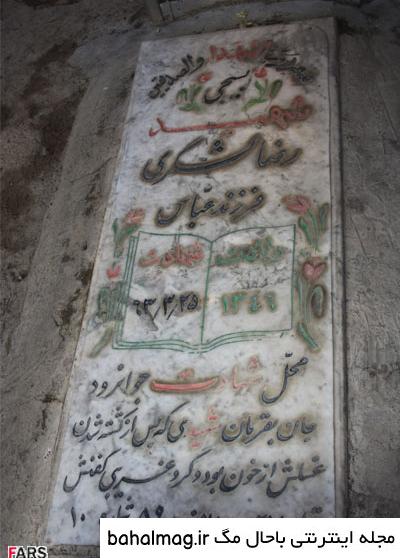 شهدا والصدیقین
بسیجی
شهید
رضا لشگری
فرزند عباس
ولادت شهادت
۱۳۴۶ ۶۳/۳/۲۵
محل شهادت جوانرود
جان بقربان شهیدی که پس از کشته شدن
غسلش از خون بود و گرد غریبی کفنش
FARS
مجله اینترنتی باحال مگ bahalmag.ir